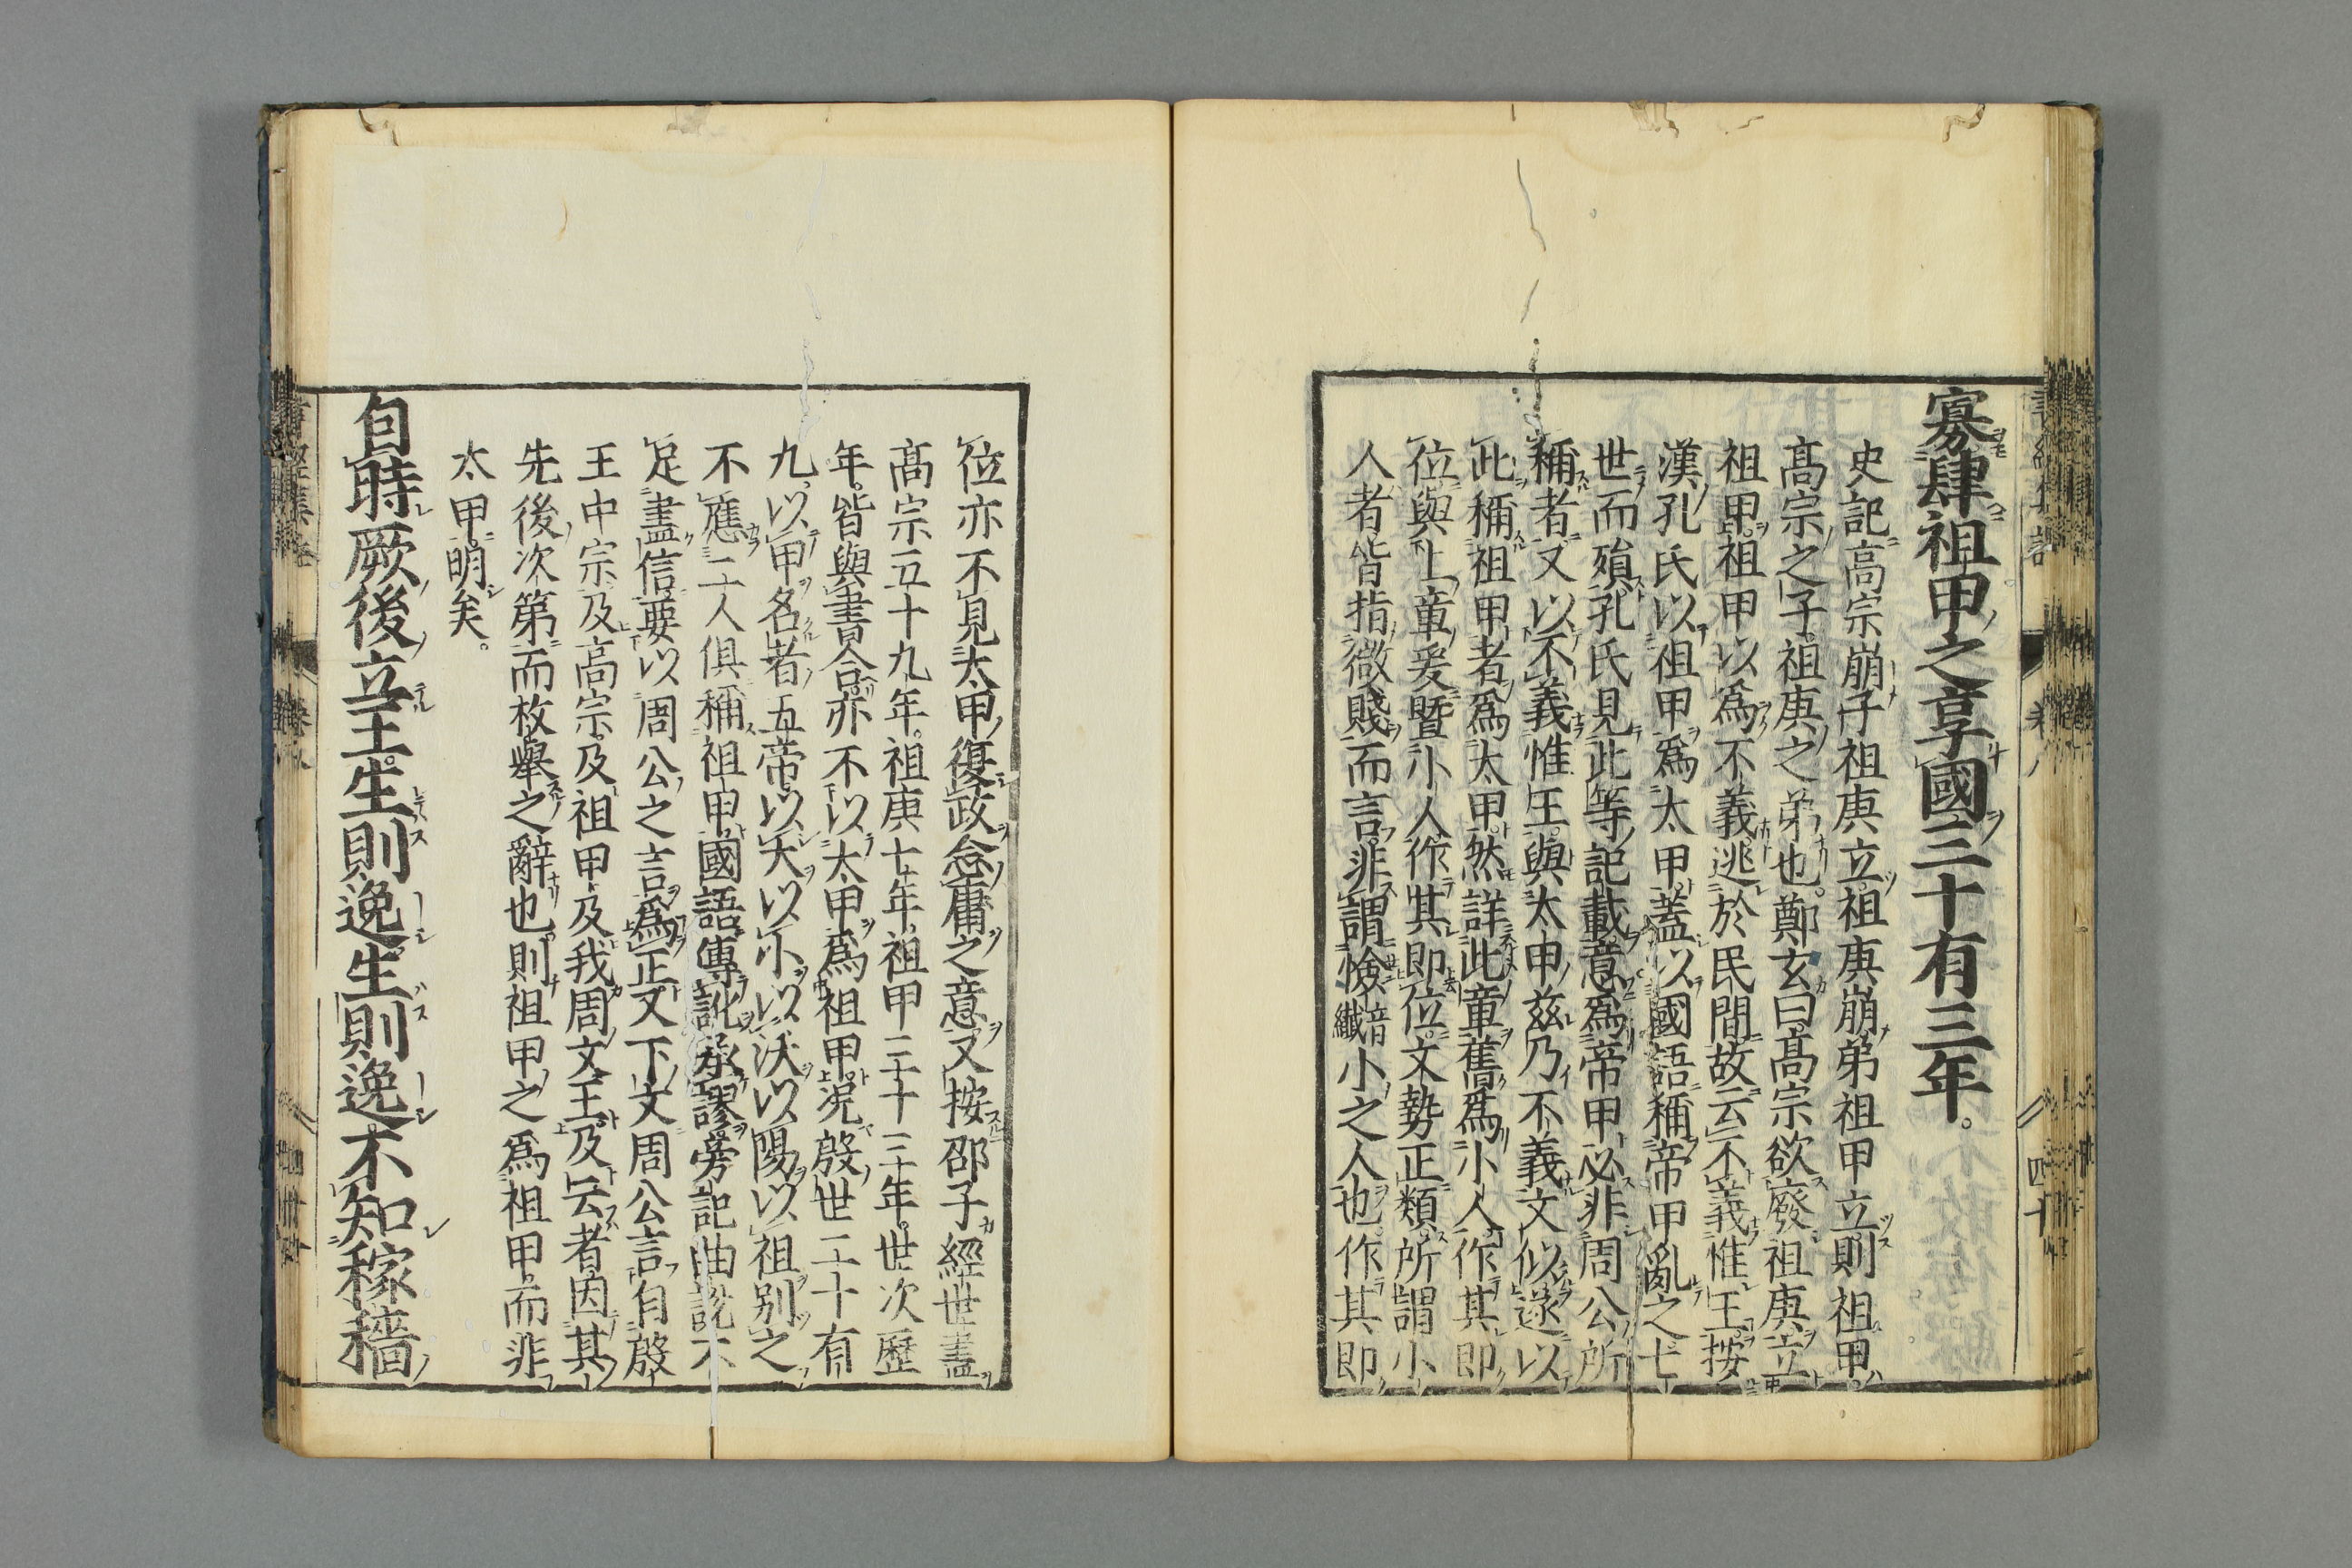 寡肆祖甲之享國三十有三年。
史記高宗崩子祖庚立祖庚崩弟祖甲立則祖甲
高宗之子祖庚之弟也。鄭玄曰高宗欲廢祖庚立
祖甲祖甲以爲不義逃於民間故云不義惟王按
漢孔氏以祖甲爲太甲蓋以國語稱帝甲亂之七
世而殞孔氏見此等記載意爲帝甲必非周公所
稱者又以不義惟王與太甲茲乃不義文似遂以
此稱祖甲者爲太甲然詳此章舊爲小人作其即
位與上章爰曁小人作其即位文勢正類所謂小
人者皆指微賤而言非謂憸音纖小之人也作其即
位亦不見太甲復政念庸之意又按邵子經世書
高宗五十九年祖庚七年祖甲三十三年世次歷
年皆與書合亦不以太甲爲祖甲況殷世二十有
九以甲名者五帝以太以小以沃以陽以祖別之
不應二人俱稱祖甲國語傳訛承謬旁記曲說不
足盡信要以周公之言爲正又下文周公言自殷
王中宗及高宗及祖甲及我周文王及云者因其
先後次第而枚舉之辭也則祖甲之爲祖甲而非
太甲明矣。
自時厥後立王生則逸生則逸不知稼穡